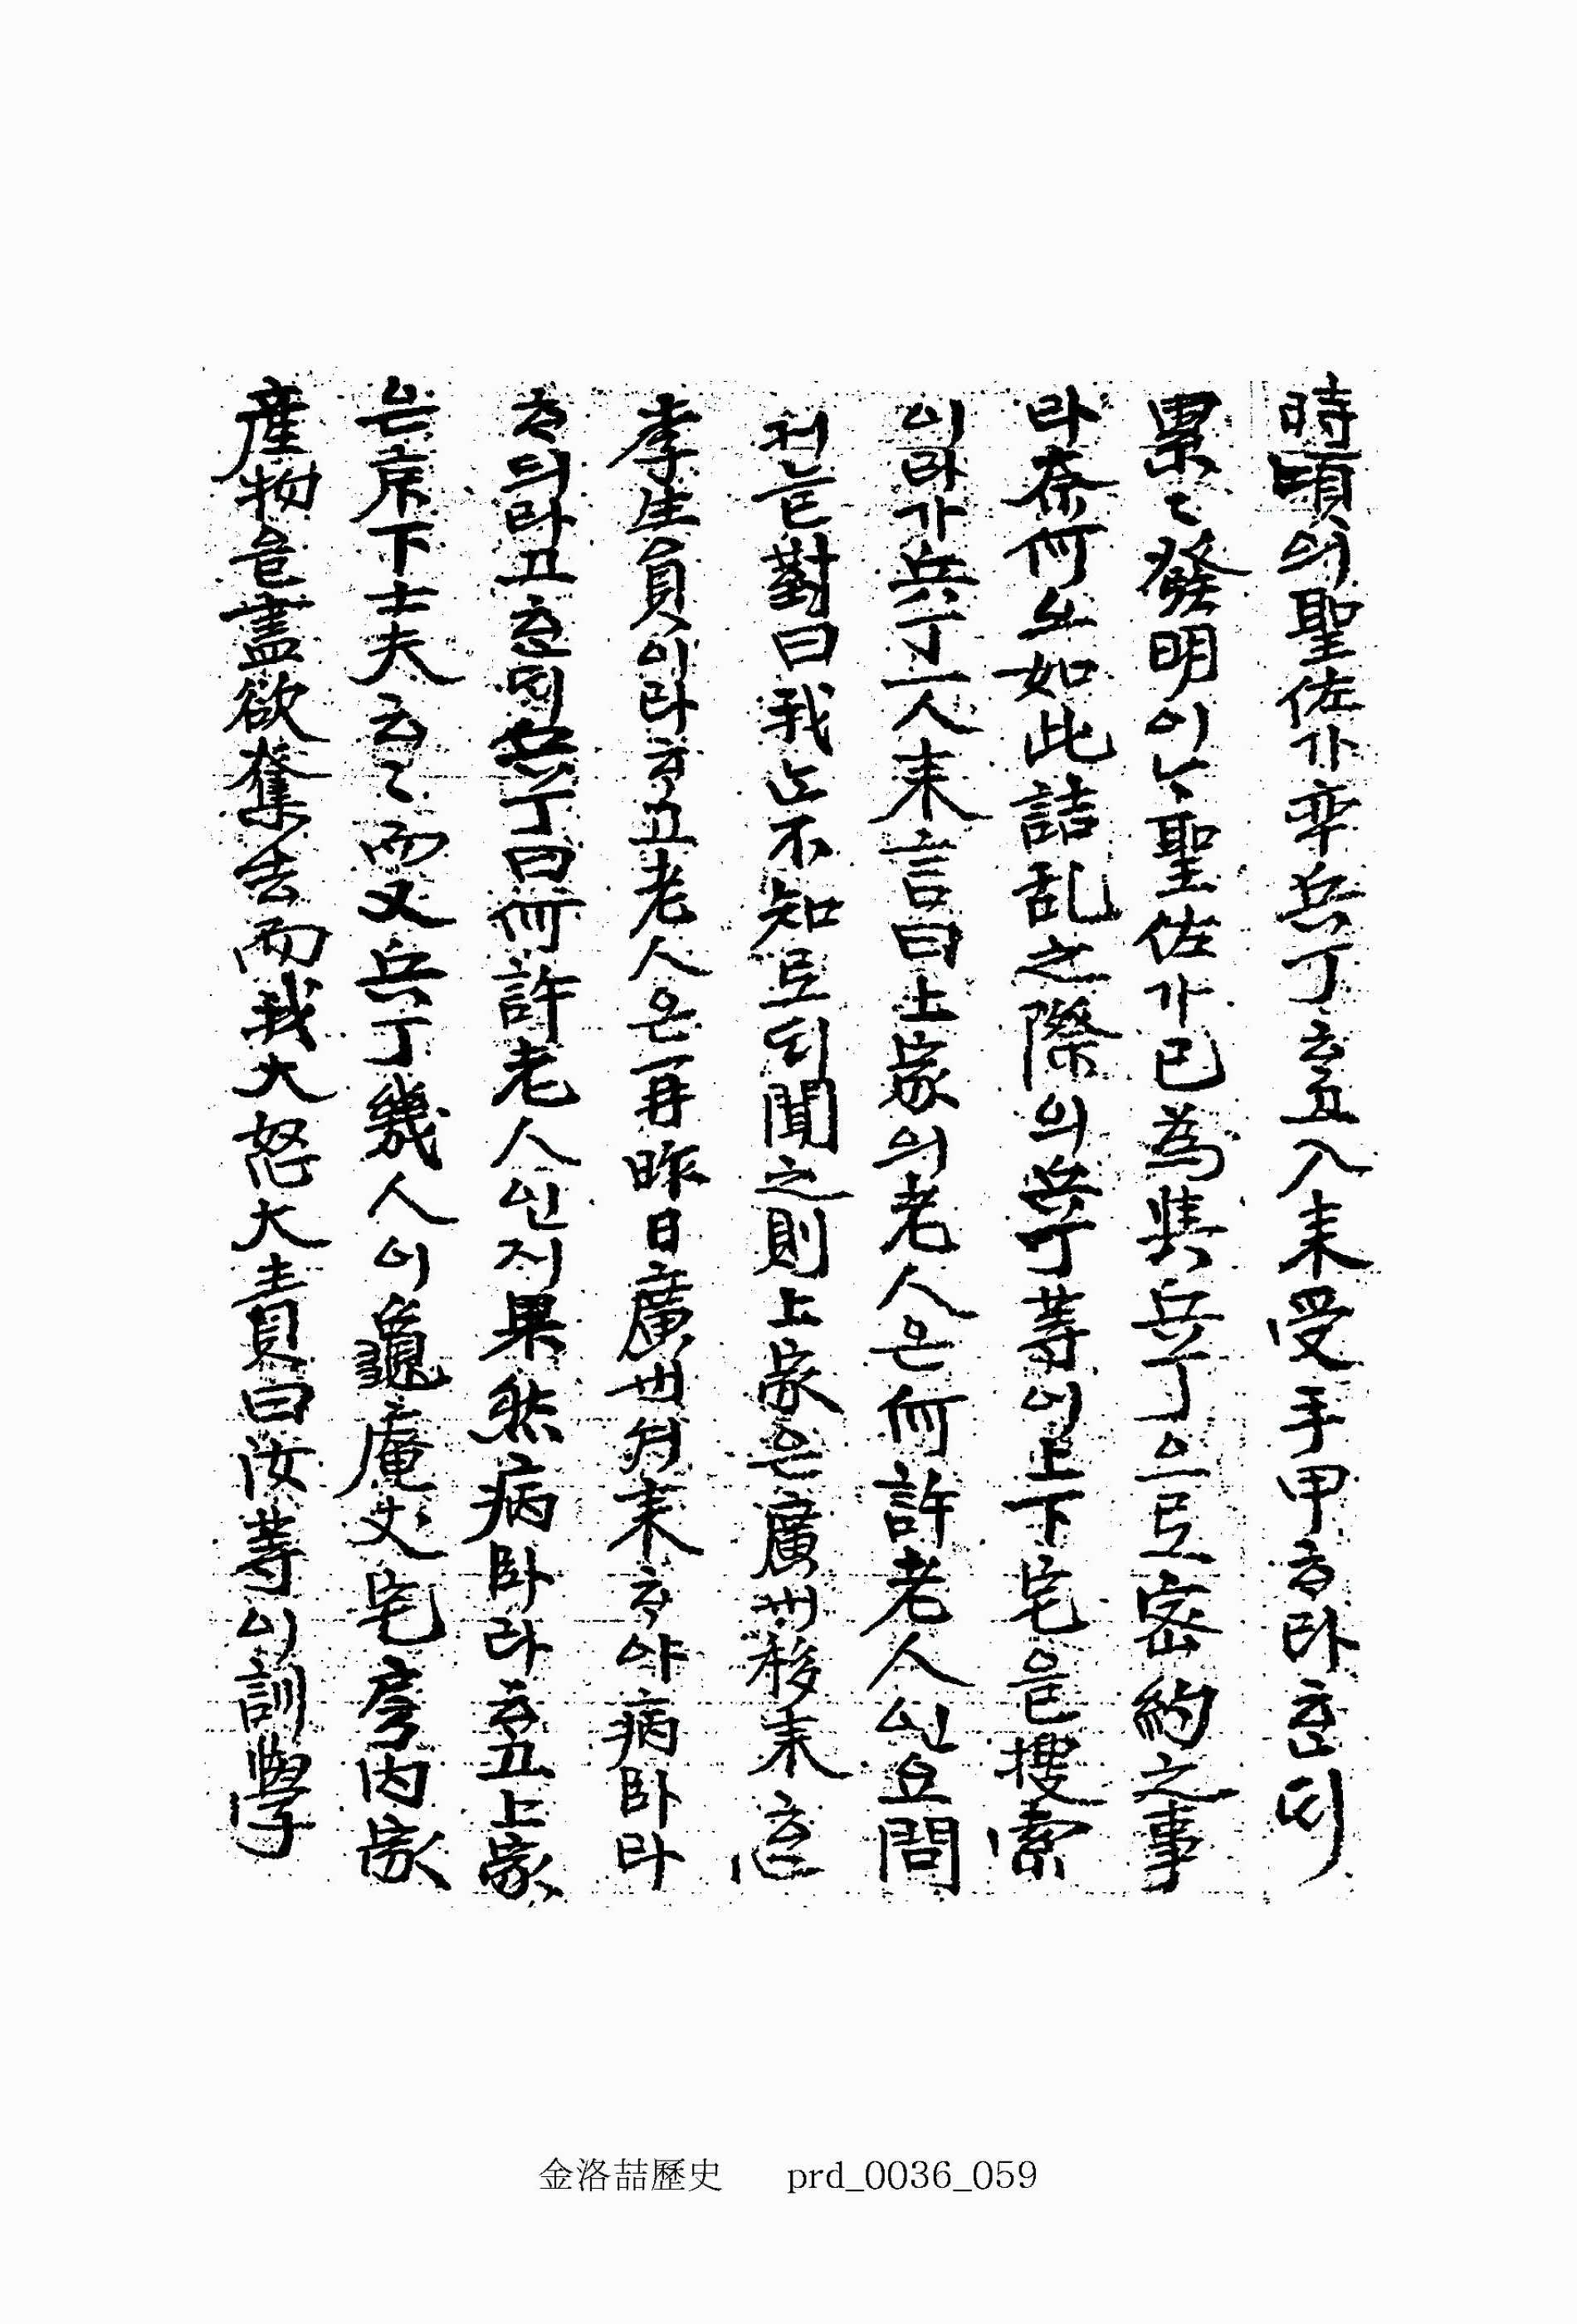 時頃의聖佐가率兵丁ᄒᆞ고入来受手甲ᄒᆞ여卧ᄒᆞᆫᄃᆡ
累〻發明이나聖佐가已為與兵丁으로密約之事
라奈何오如此詰乱之際의兵丁等이上下宅을搜索
이라가兵丁一人来言曰上家의老人은何許老人신고問
거늘對曰我도不知로ᄃᆡ聞之則上家은廣州移来ᄒᆞᆫ
李生員이라ᄒᆞ고老人은再昨日廣州셔来ᄒᆞ야病卧라
ᄒᆞ듸라고ᄒᆞᆫᄃᆡ兵丁曰何許老人인지果然病卧라ᄒᆞ고上家
는京下士夫云〻而又兵丁幾人이龜庵丈宅房内家
産物을盡欲奪去而我大怒大責曰汝等이訓學
金洛喆歷史 prd_0036_059